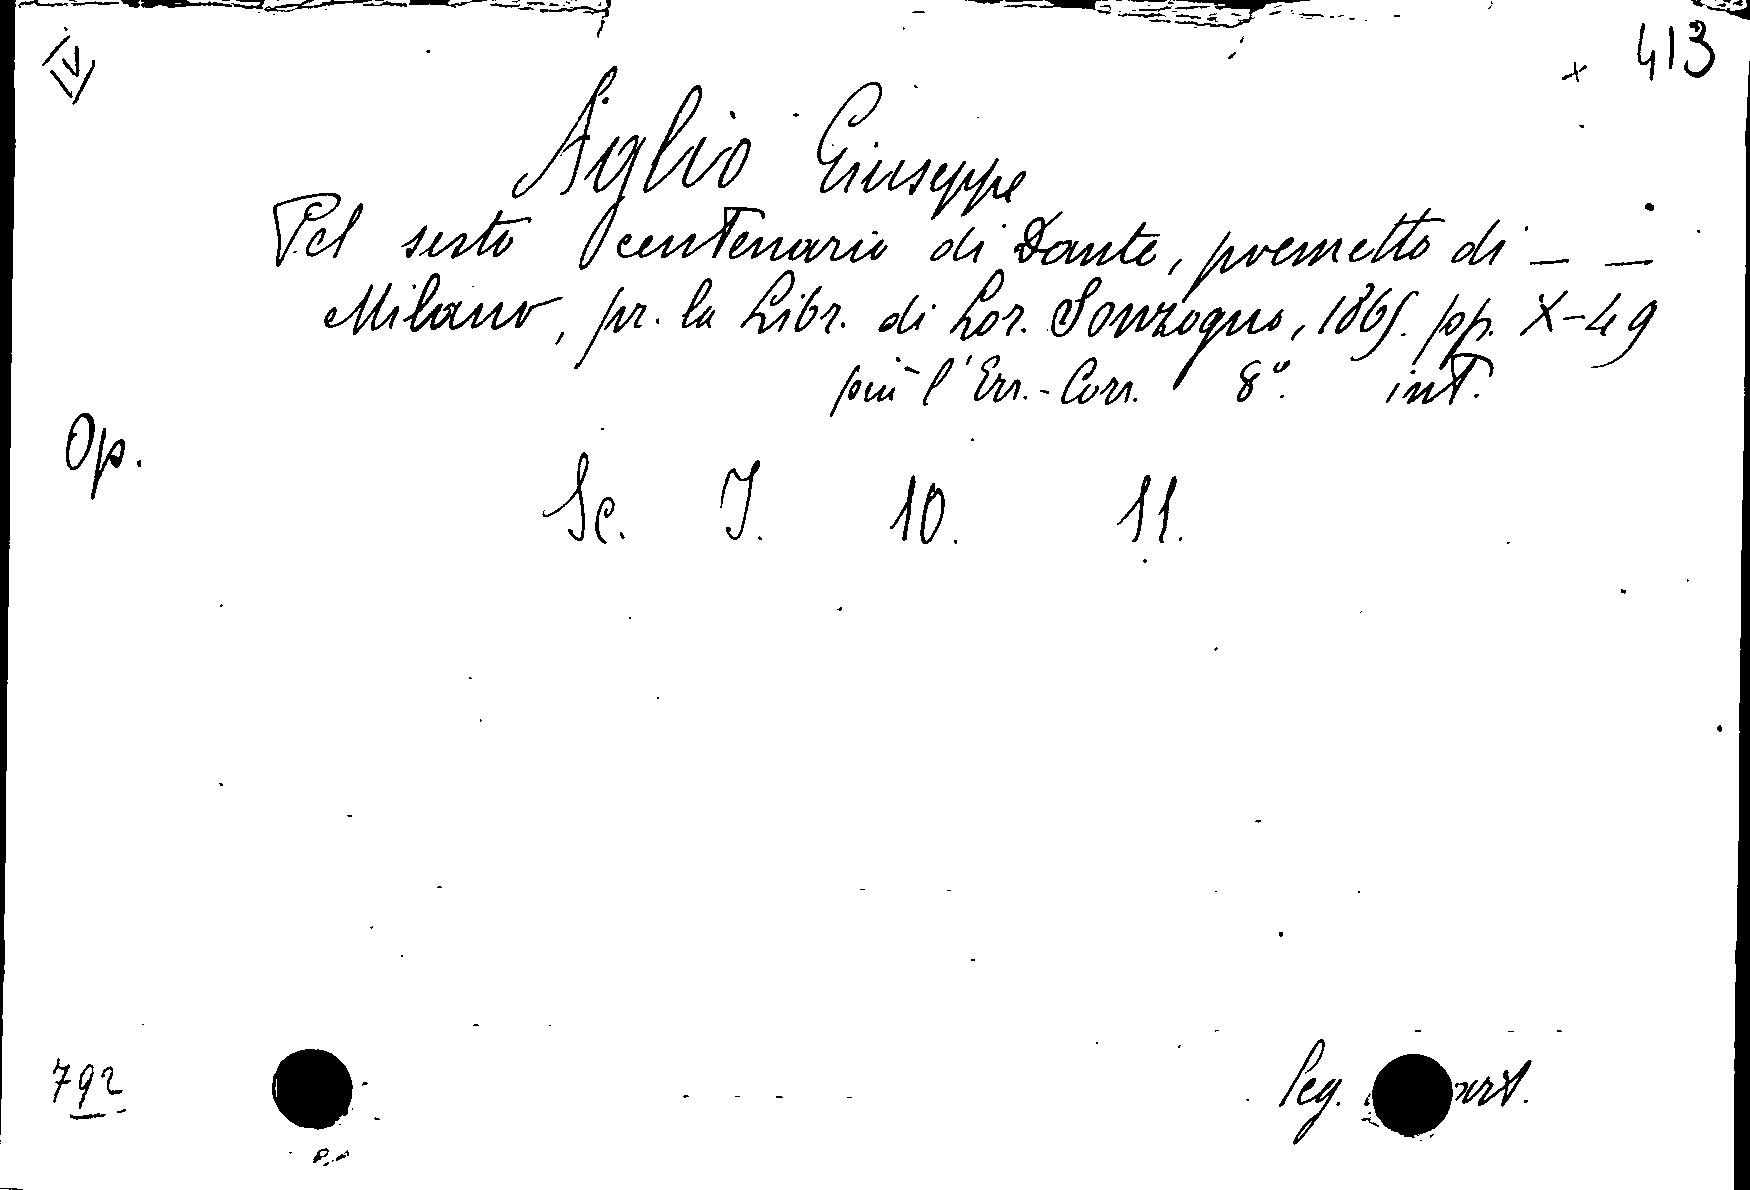 IV
× 413
Aglio Giuseppe
Pel sesto centenario di Dante, poemetto di _ _
Milano, pr. la Libr. di Lor. Sonzogno, 1865. pp. X-49
più l'Err.-Corr. 8º. int.
Op.
Sc. I. 10. 11.
792
Leg.